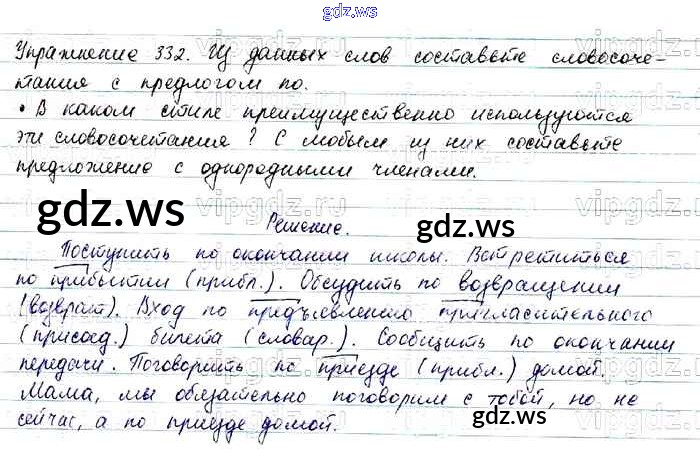 gdz.ws
Упражнение 332. Из данных слов составьте словосоче-
тания с предлогом по.
• В каком стиле преимущественно используются
эти словосочетания? С любым из них составьте
предложение с однородными членами.
gdz.ws gdz.ws
Решение.
Поступить по окончании школы. Встретиться
по прибытии (прибл.). Обсудить по возвращении
(возврат). Вход по предъявлению пригласительного
(присоед.) билета (словар.). Сообщить по окончании
передачи. Поговорить по приезде (прибл.) домой.
Мама, мы обязательно поговорим с тобой, но не
сейчас, а по приезде домой.
gdz.ws gdz.ws